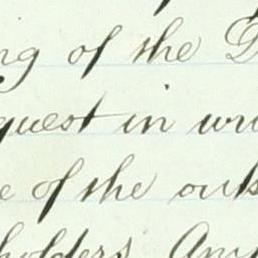 ng of the
quest in wri
e of the outs
holders. Any